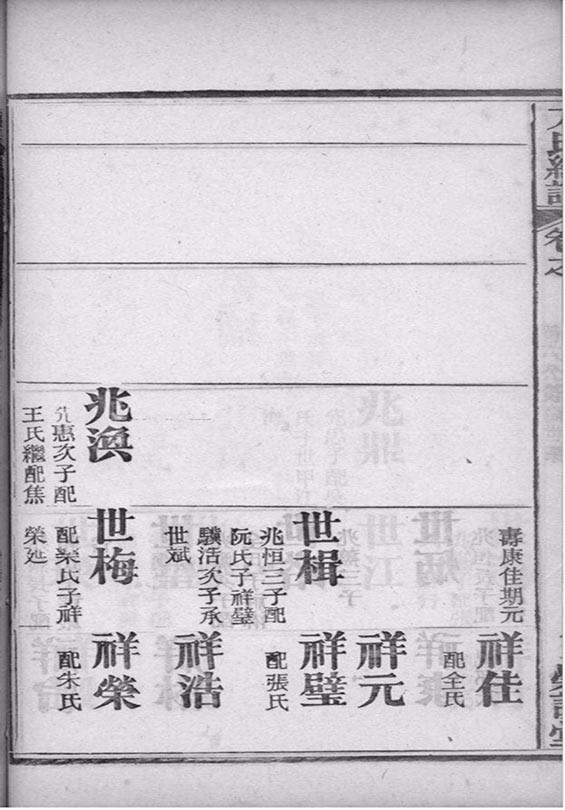 氏統譜
卷之
壽康佳期元
祥佳
配全氏
祥元
世楫
兆恒三子配
阮氏子祥璧
祥璧
配張氏
驥活次子承
世斌
祥浩
兆澳
惠次子配
王氏繼配焦
世梅
配梁氏子祥
榮延
祥榮
配朱氏